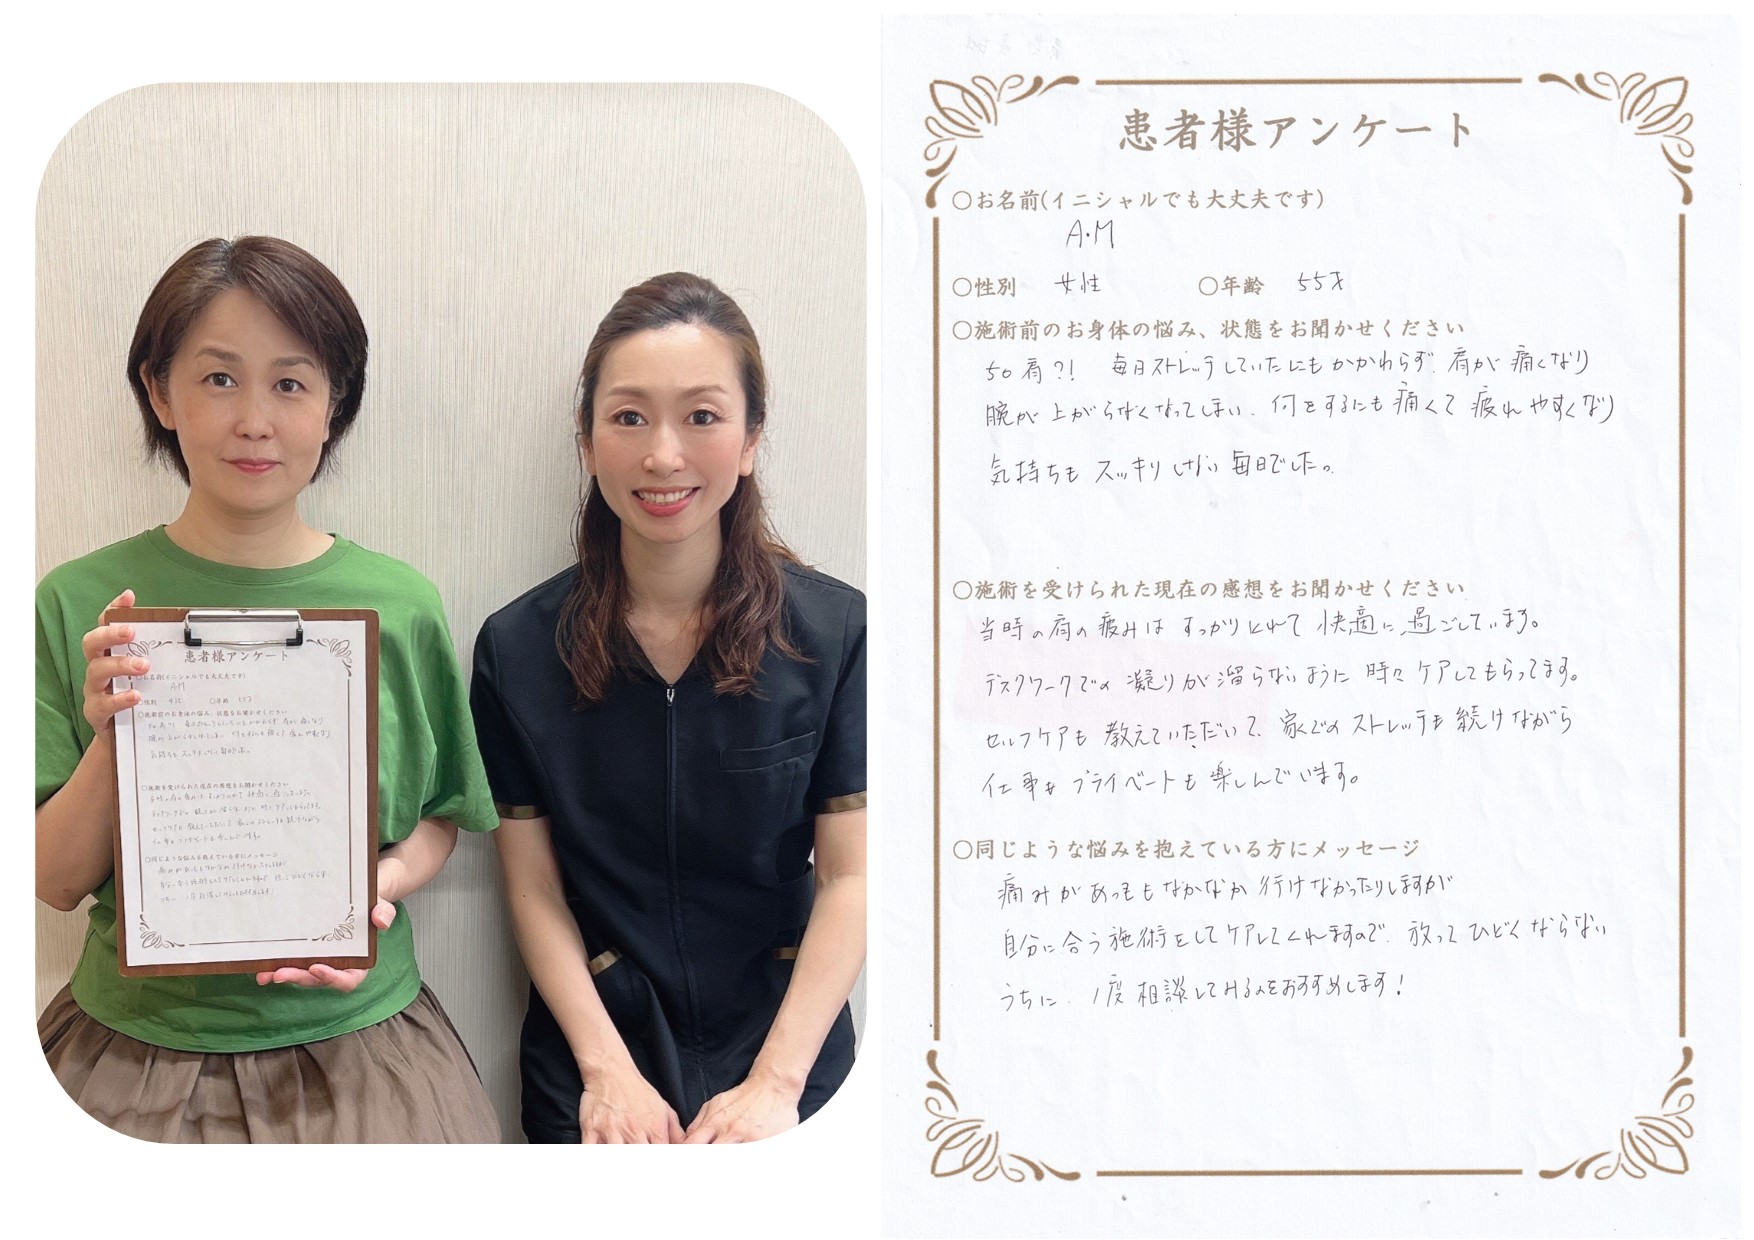 患者様アンケート
○お名前(イニシャルでも大丈夫です)
A.M
○性別 女性 ○年齢 55才
○施術前のお身体の悩み、状態をお聞かせください
50肩?! 毎日ストレッチしていたにもかかわらず、肩が痛くなり
腕が上がらなくなってしまい、何をするにも痛くて疲れやすくなり
気持ちもスッキリしない毎日でした。
○施術を受けられた現在の感想をお聞かせください
当時の肩の痛みはすっかりとれて快適に過ごしています。
デスクワークでの凝りが溜らないように時々ケアしてもらってます。
セルフケアも教えていただいて、家でのストレッチも続けながら
仕事もプライベートも楽しんでいます。
○同じような悩みを抱えている方にメッセージ
痛みがあってもなかなか行けなかったりしますが
自分に合う施術をしてケアしてくれますので、放ってひどくならない
うちに、1度相談してみるのをおすすめします!